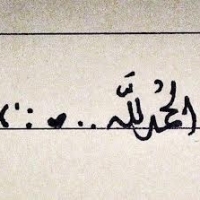 الحمدُ للَّه .. ♥ :"